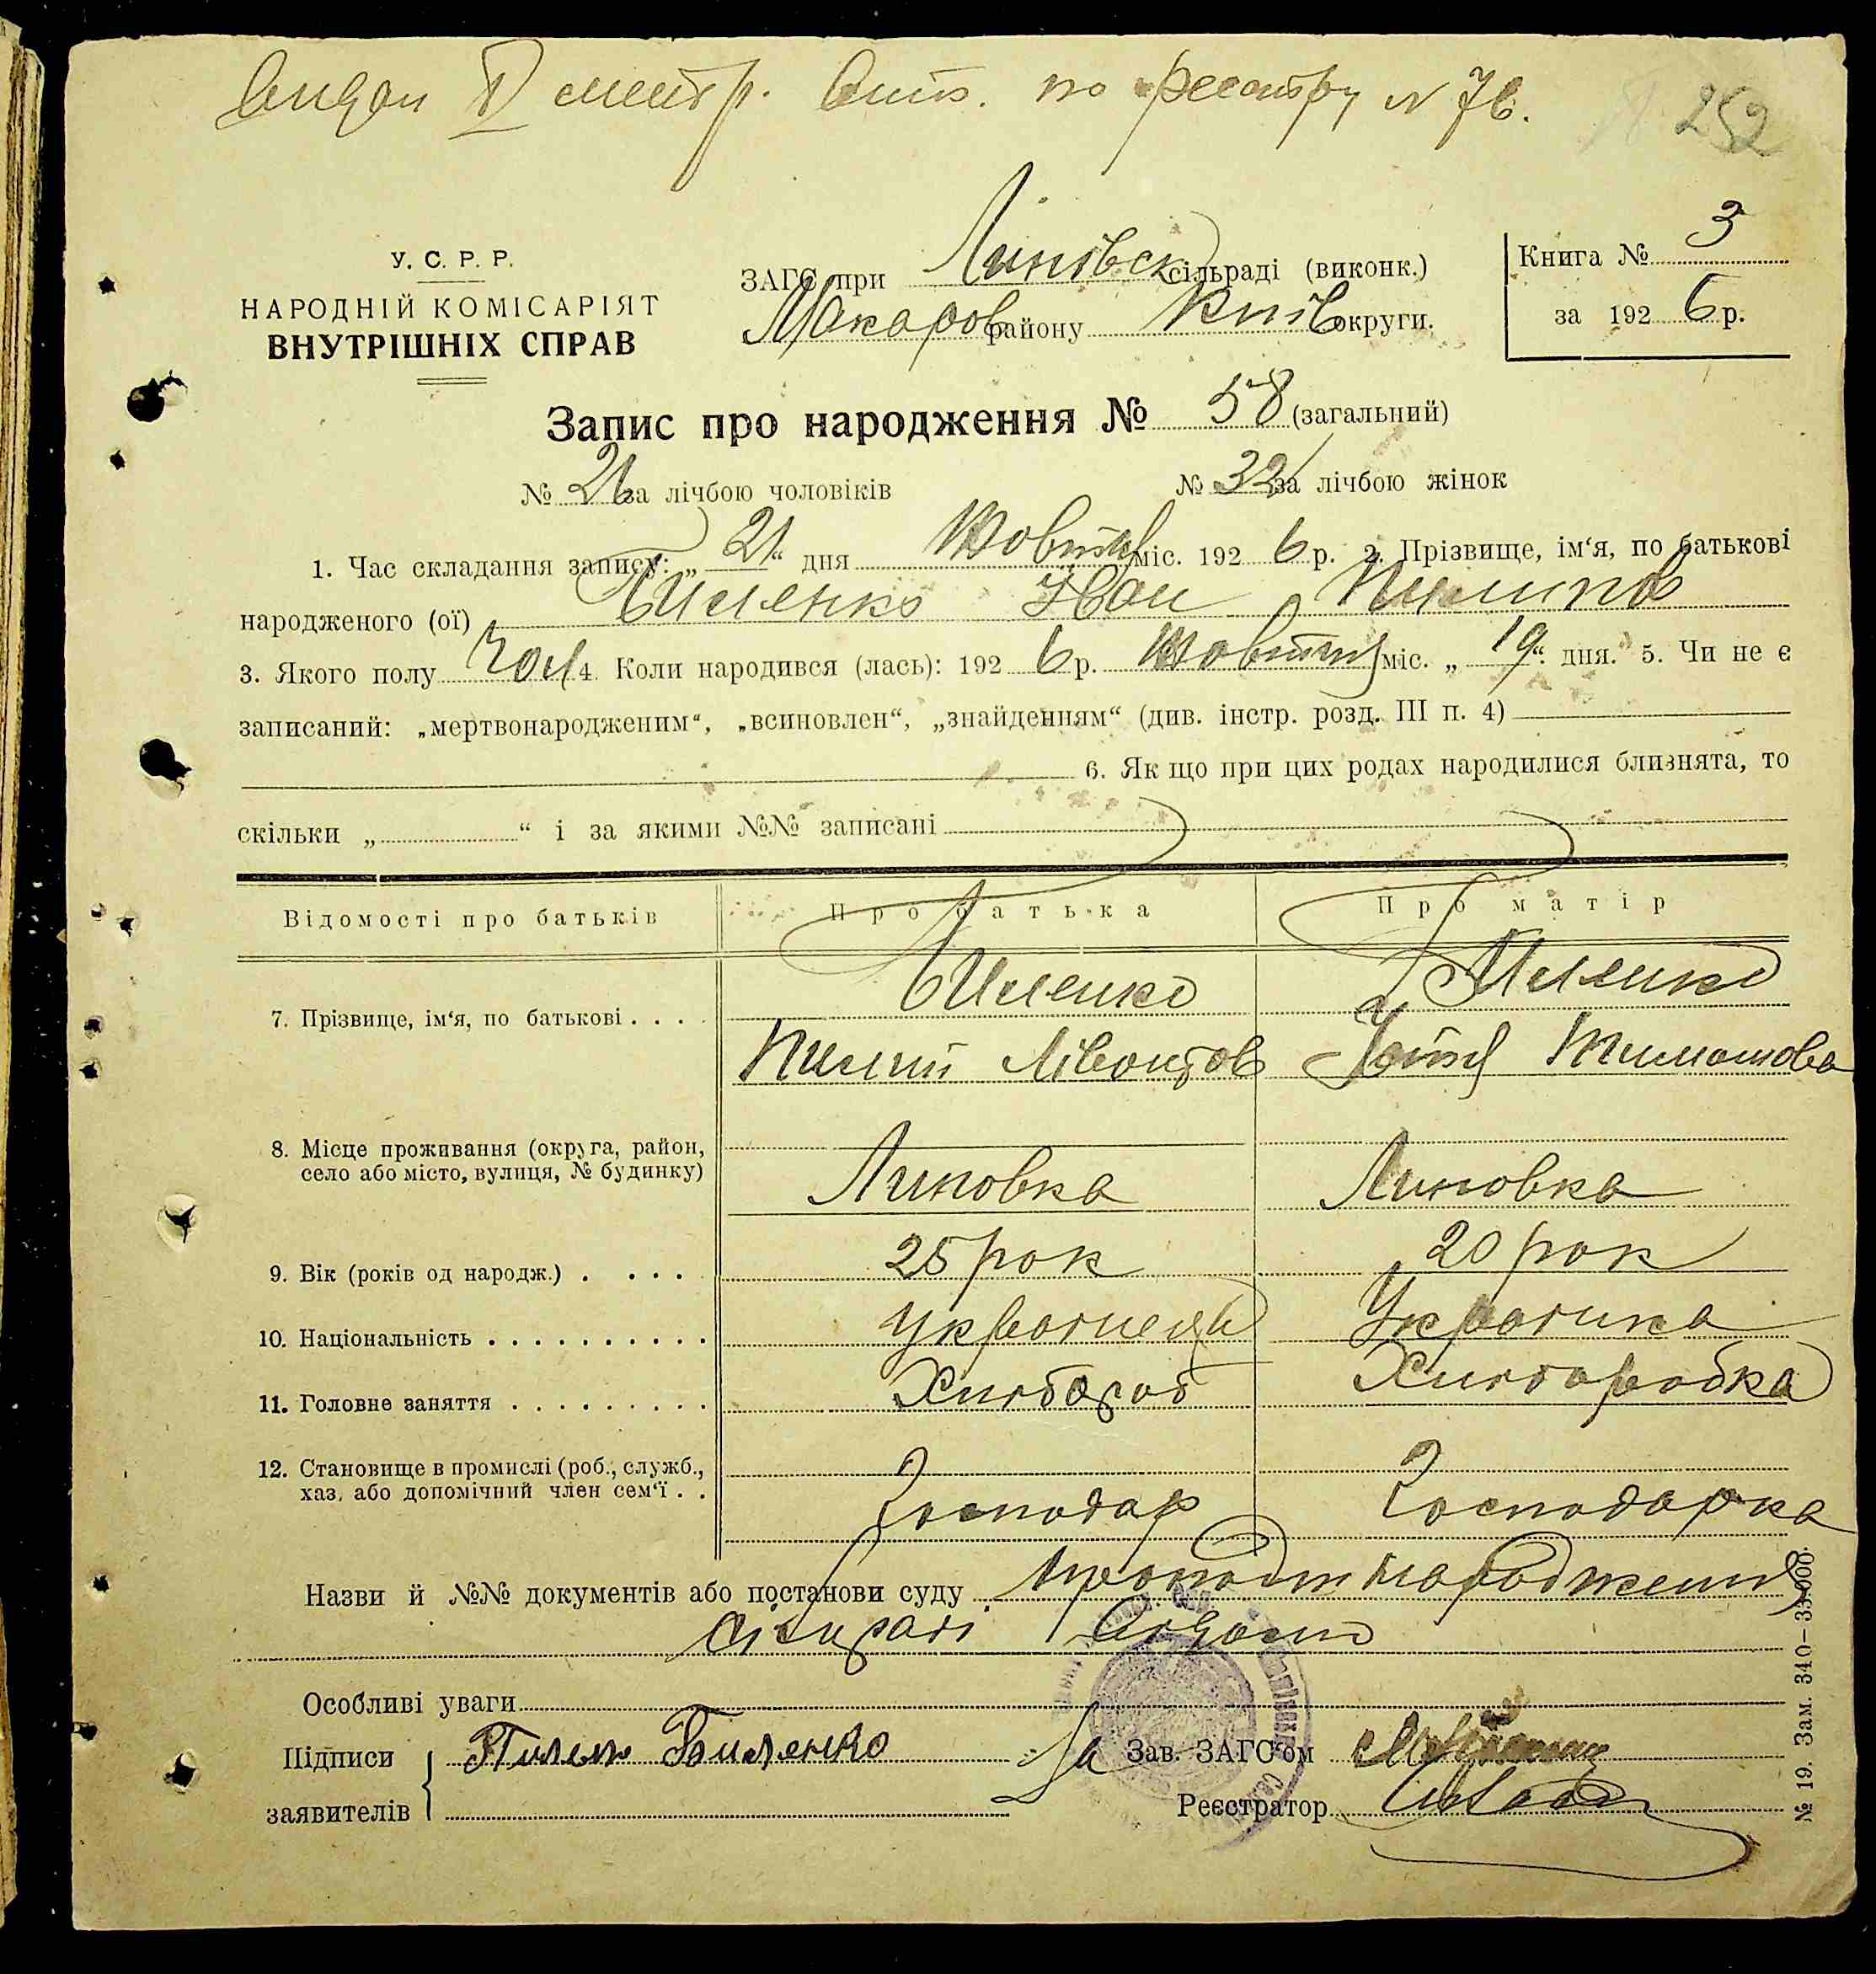 Видан II метр. Вип. по реестру N 76.
252
У. С. Р. Р.
НАРОДНІЙ КОМІСАРІЯТ
ВНУТРІШНІХ СПРАВ
ЗАГС при Липовск сільраді (виконк.)
Макаров району Київ округи.
Книга № 3
за 1926 р.
Запис про народження № 58 (загальний)
№ 26 за лічбою чоловіків № 32 за лічбою жінок
1. Час складання запису: „21“ дня Жовтня міс. 1926 р. 2. Прізвище, ім‘я, по батькові
народженого (ої) Биленко Іван Пилипов
3. Якого полу Чол 4. Коли народився (лась): 1926 р. Жовтня міс. „19“ дня. 5. Чи не є
записаний: „мертвонародженим“, „всиновлен“, „знайденням“ (див. інстр. розд. III п. 4)
6. Як що при цих родах народилися близнята, то
скільки „ “ і за якими №№ записані
Відомості про батьків Про батька Про матір
7. Прізвище, ім‘я, по батькові . . . . Биленко Биленко
Пилип Лівонтов Тимошова
8. Місце проживання (округа, район,
село або місто, вулиця, № будинку) Липовка Липовка
9. Вік (років од народж.) . . . . 25 рок 20 рок
10. Національність . . . . . . . . . . Українець Українка
11. Головне заняття . . . . . . . . . Хлібороб Хліборобка
12. Становище в промислі (роб., служб.,
хаз. або допомічний член сем‘ї . . Господар Господарка
Назви й №№ документів або постанови суду народження
сільраді відомо
Особливі уваги
Підписи Пилип Биленко За Зав. ЗАГС‘ом
заявителів Реєстратор
№ 19. Зам. 340—33.000.